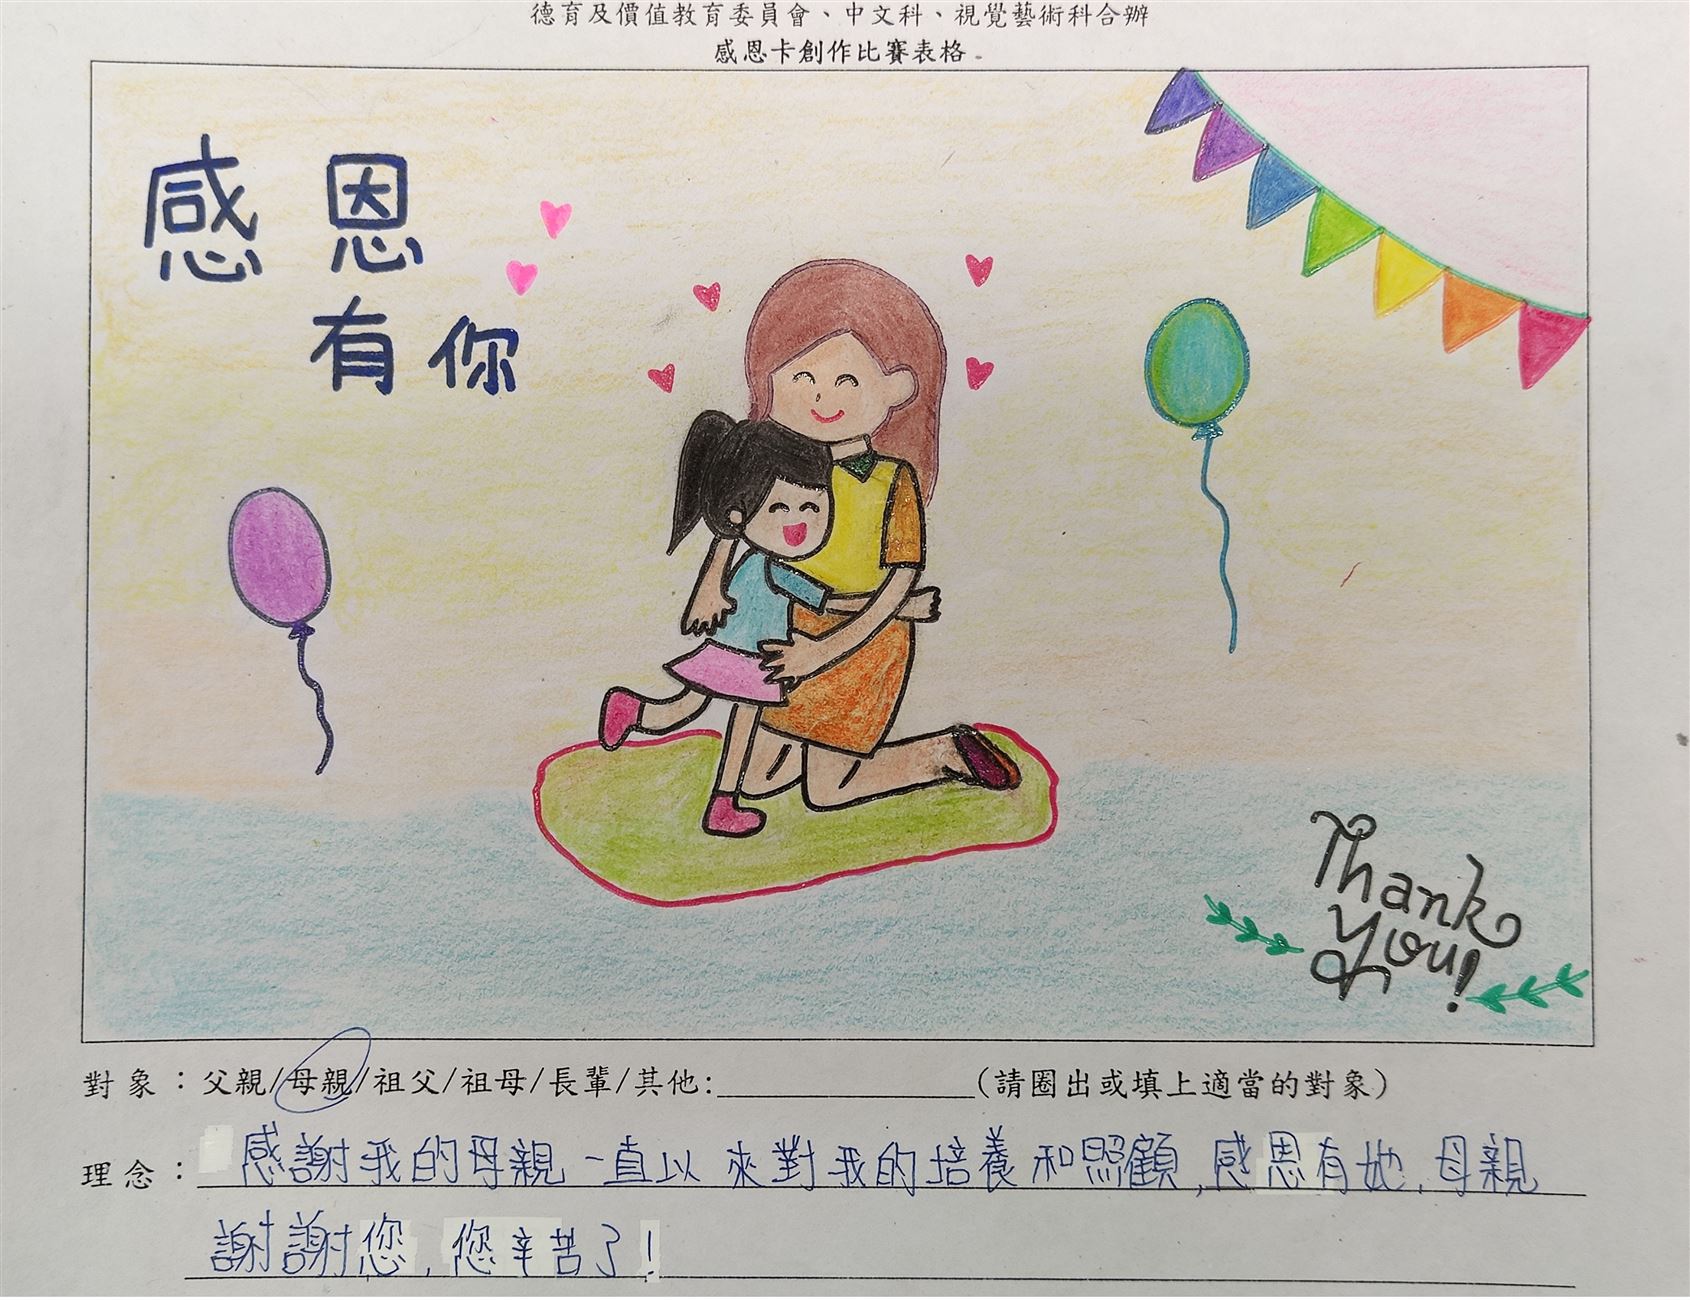 德育及價值教育委員會、中文科、視覺藝術科合辦
感恩卡創作比賽表格
感恩
有你
Thank
You!
對象：父親/母親/祖父/祖母/長輩/其他:____________(請圈出或填上適當的對象)
理念：感謝我的母親一直以來對我的培養和照顧,感恩有她,母親
謝謝您,您辛苦了!